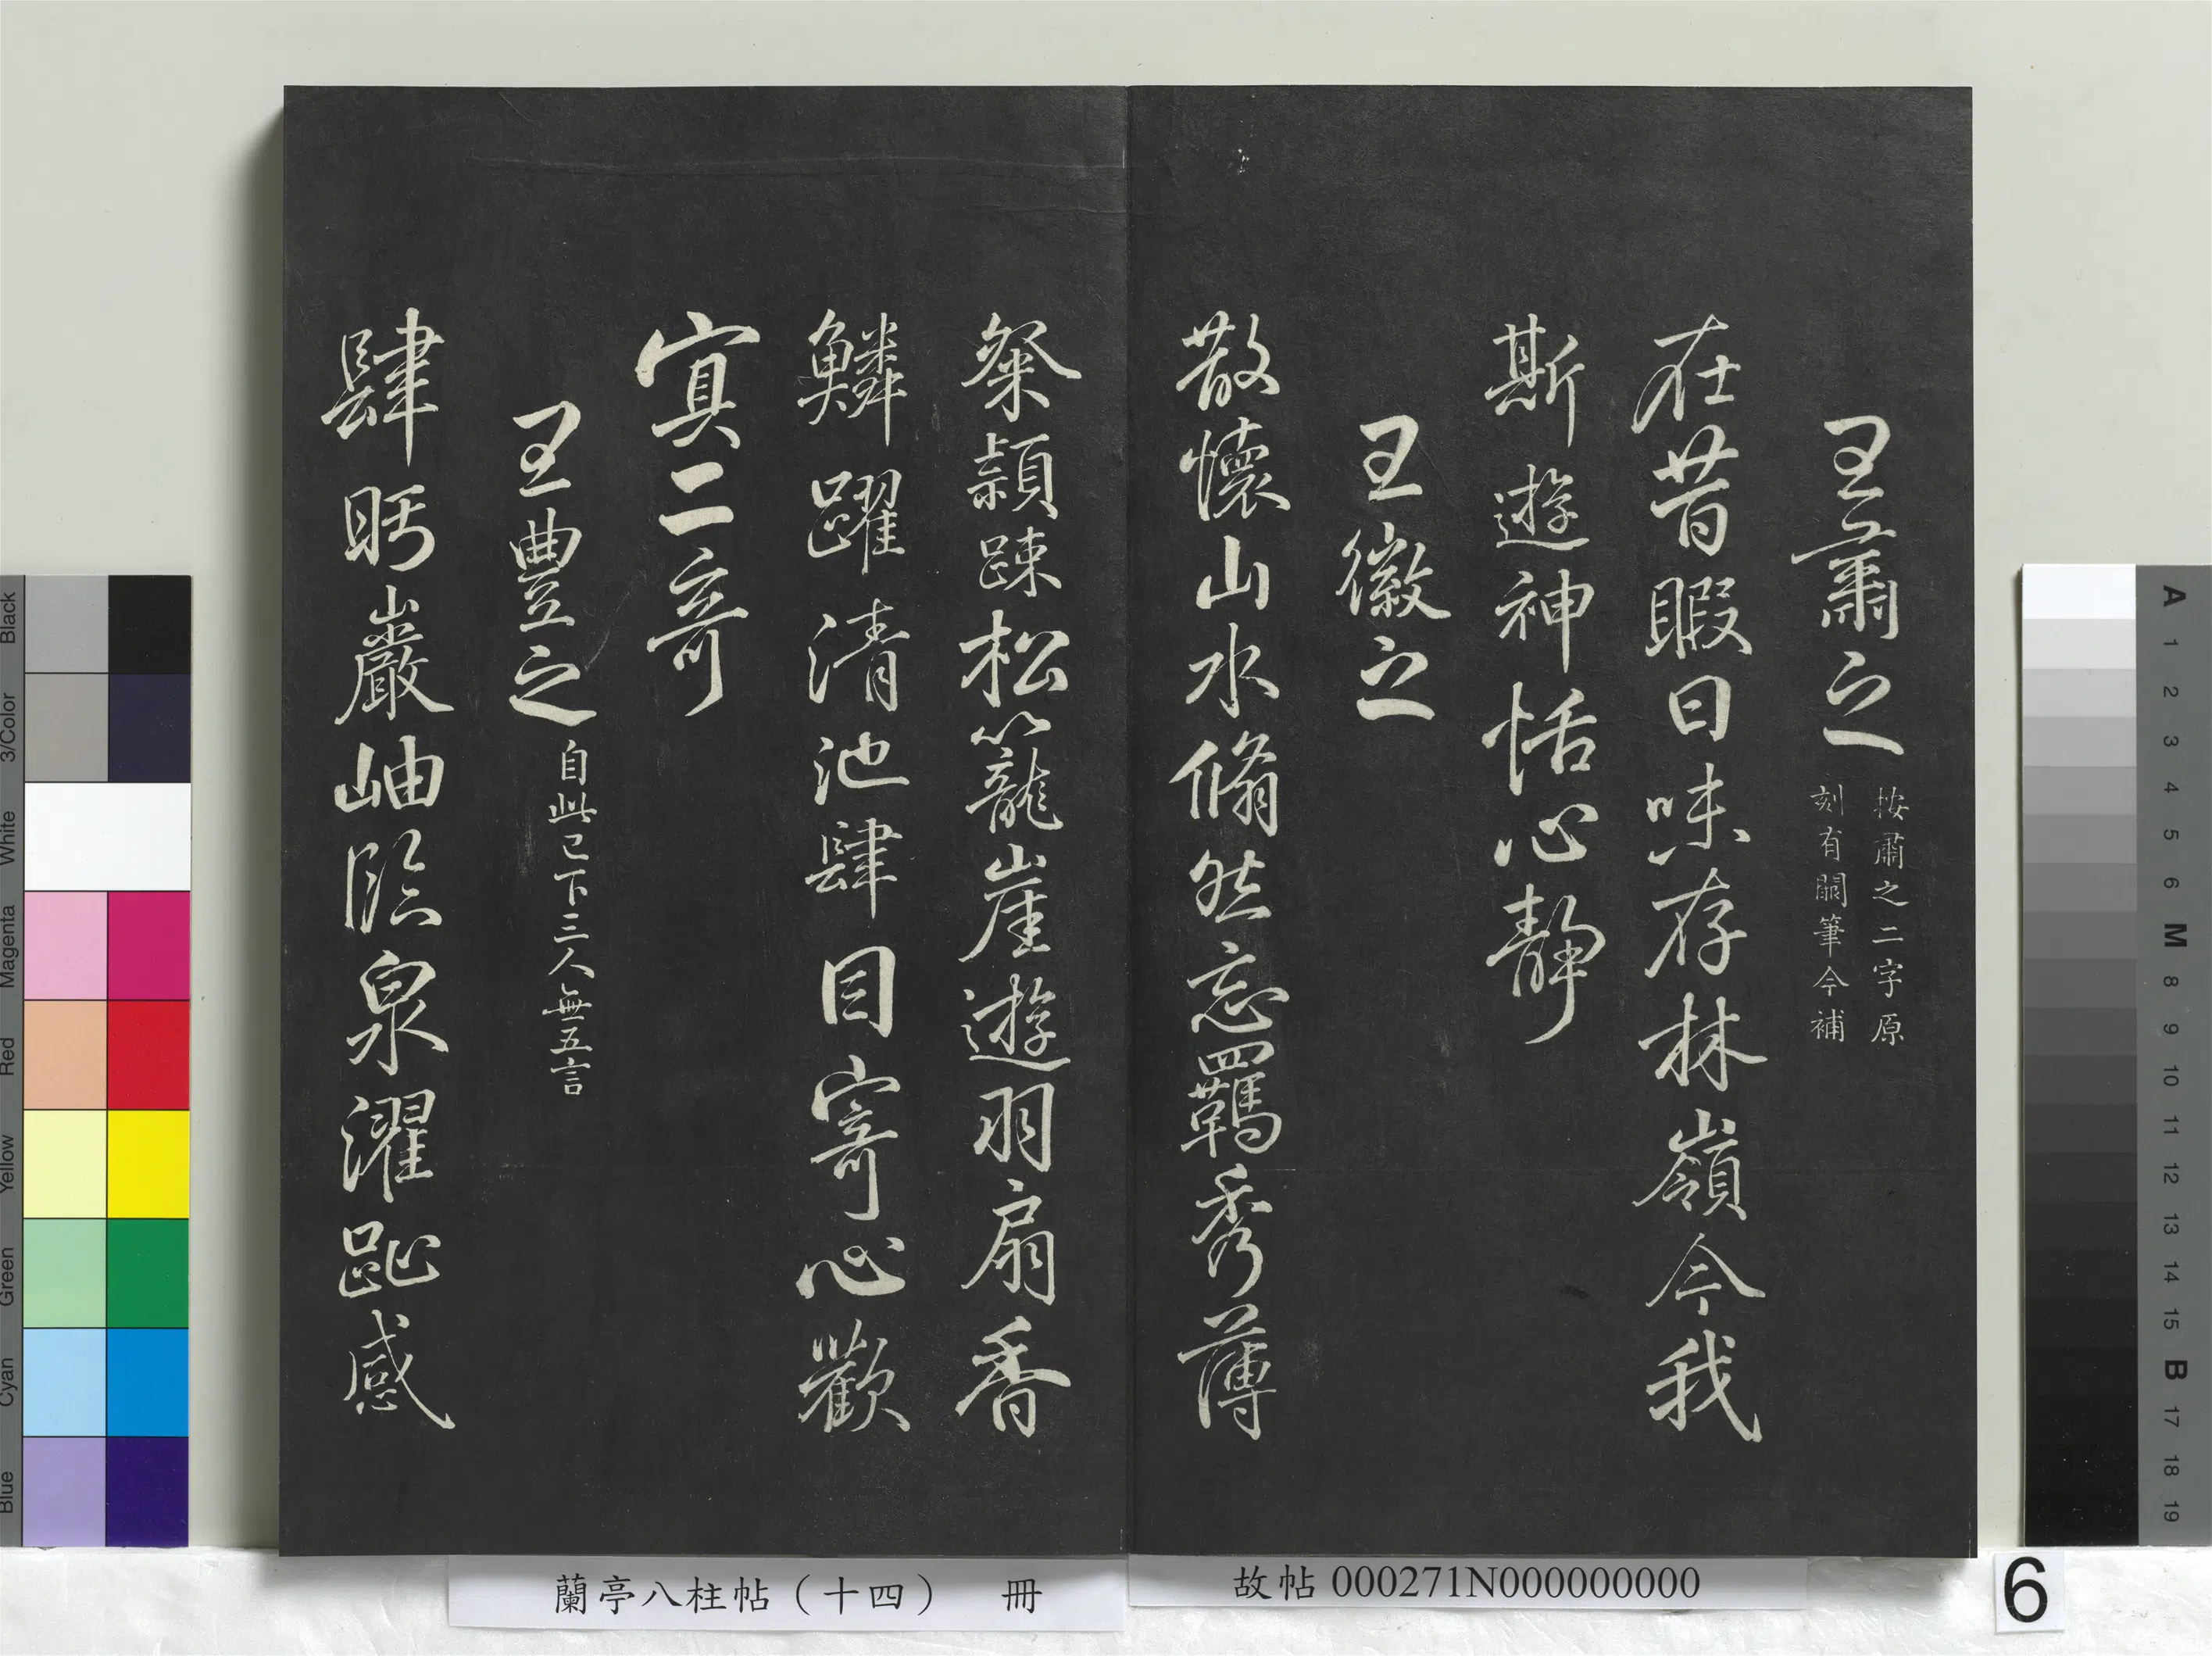 王肅之
按肅之二字原
刻有闕筆今補
在昔暇日味存林嶺今我
斯遊神恬心靜
王徽之
散懷山水翛然忘羈秀薄
粲穎疎松籠崖遊羽扇香
鱗躍清池肆目寄心歡
寘二奇
王豐之
自此已下三人無五言
肆眄巖岫臨泉濯趾感
蘭亭八柱帖（十四） 冊
故帖 000271N000000000
6
Black
3/Color
White
Magenta
Red
Yellow
Green
Cyan
Blue
A 1 2 3 4 5 6 M 8 9 10 11 12 13 14 15 B 17 18 19